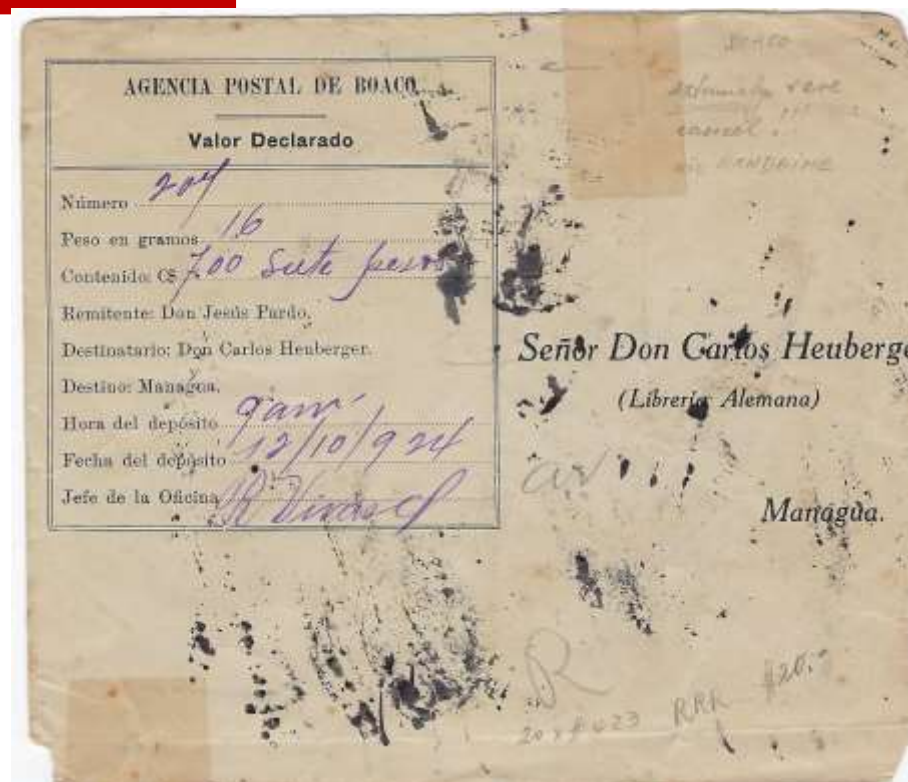 AGENCIA POSTAL DE BOACO
Valor Declarado
Número 204
Peso en gramos 16
Contenido: C$ 7.00 Siete pesos
Remitente: Don Jesús Pardo.
Destinatario: Don Carlos Heuberger.
Destino: Managua.
Hora del depósito 9 am
Fecha del depósito 12/10/924
Jefe de la Oficina R Vivas
BOACO
extremely rare
cancel
NANDAIME
Señor Don Carlos Heuberge
(Librería Alemana)
Managua.
R
RRR $20.-